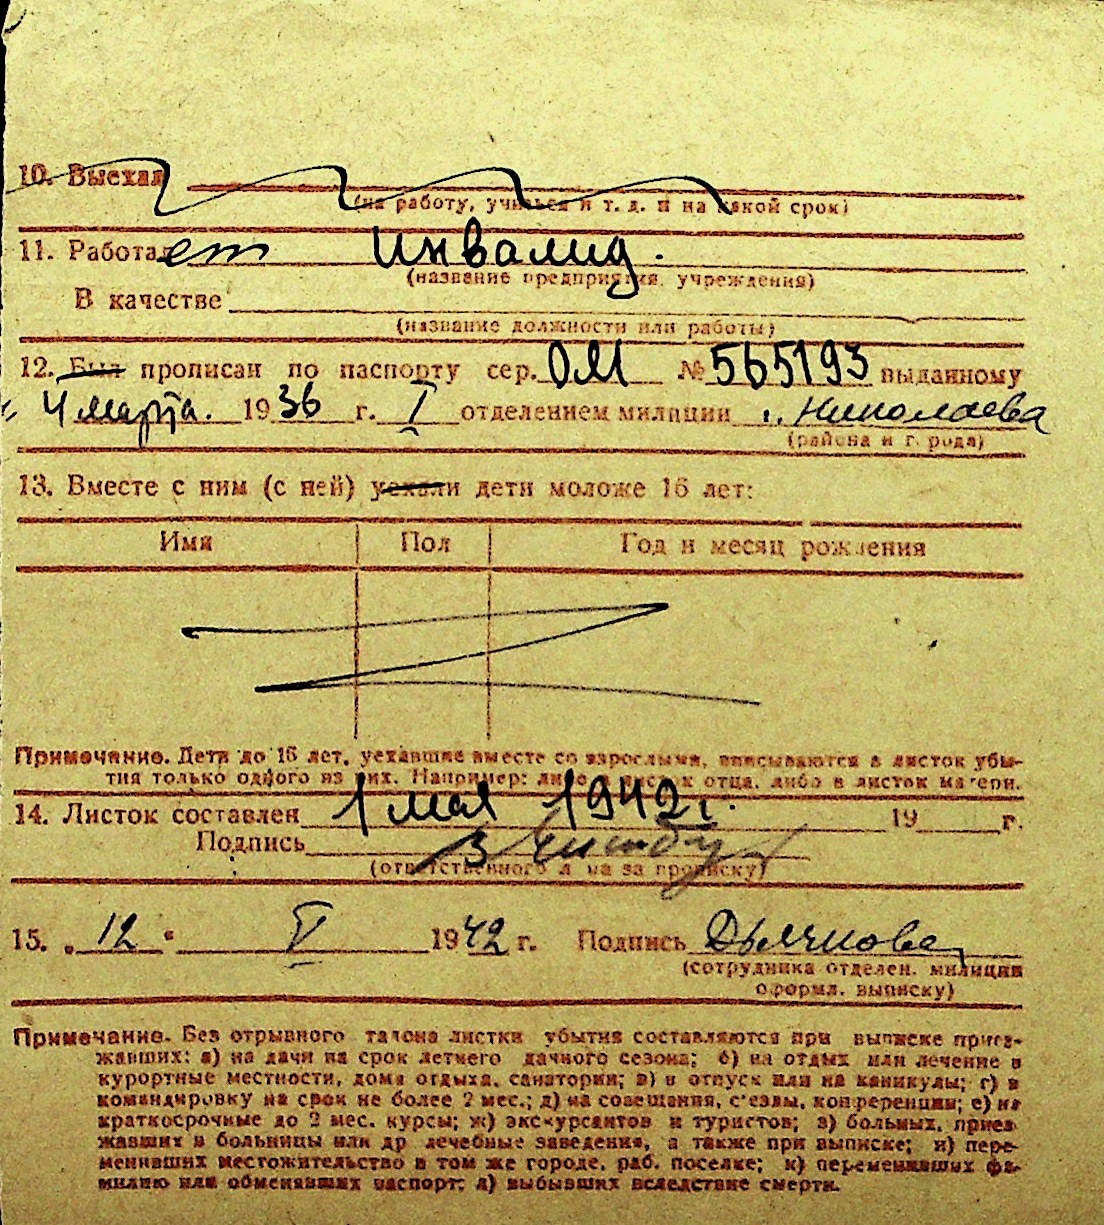 10. Выехал
(на работу, учиться и т. д. и на какой срок)
11. Работает инвалид.
(название предприятия, учреждения)
В качестве
(название должности или работы)
12. Был прописан по паспорту сер. ОМ № 565193 выданному
4 марта. 1936 г. I отделением милиции г. Николаева
(района и города)
13. Вместе с ним (с ней) уехали дети моложе 16 лет:
Имя Пол Год и месяц рождения
Примечание. Дети до 16 лет, уехавшие вместе со взрослыми, вписываются в листок убы-
тия только одного из них. Например: либо в листок отца, либо в листок матери.
14. Листок составлен 1 мая 1942 г. 19 г.
Подпись
(ответственного лица за прописку)
15. „12“ V 1942 г. Подпись
(сотрудника отделен. милиции
оформл. выписку)
Примечание. Без отрывного талона листки убытия составляются при выписке приез-
жавших: а) на дачи на срок летнего дачного сезона; б) на отдых или лечение в
курортные местности, дома отдыха, санатории; в) в отпуск или на каникулы; г) в
командировку на срок не более 2 мес.; д) на совещания, с'езды, конференции; е) на
краткосрочные до 2 мес. курсы; ж) экскурсантов и туристов; з) больных, приез-
жавших в больницы или др лечебные заведения, а также при выписке; и) пере-
менивших местожительство в том же городе, раб. поселке; к) переменивших фа-
милию или обменявших паспорт; л) выбывших вследствие смерти.